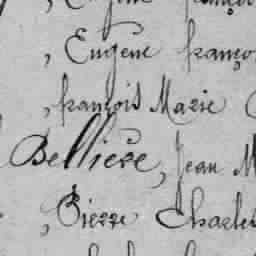 , Eugène franço
, françois Marie
Bellière, Jean M
, Pierre Charles